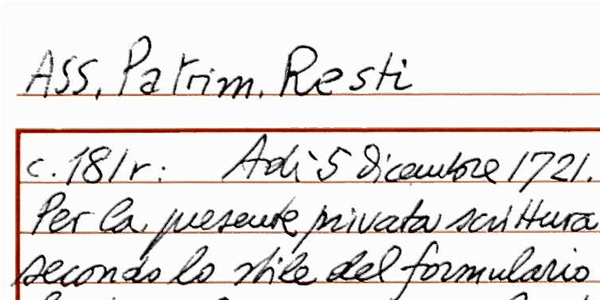 Ass. Patrim. Resti
c. 181r: Adì 5 dicembre 1721.
Per la presente privata scrittura
secondo lo stile del formulario